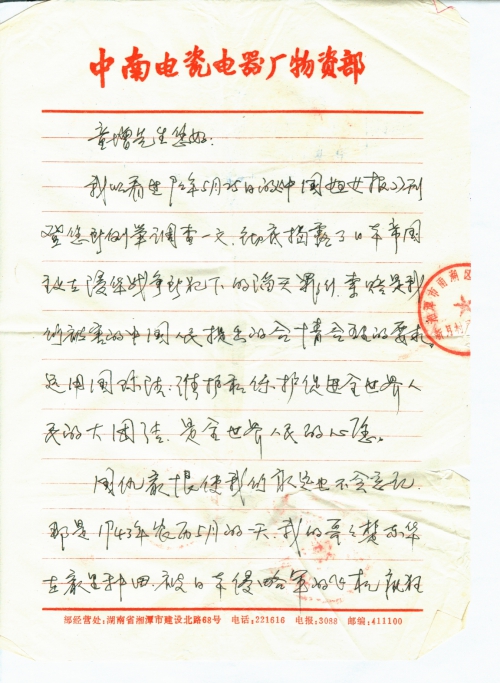 中南电瓷电器厂物资部
童增先生您好:
我们看望92年5月25日的《中国妇女报》刊
登您所倒葉调查一文,彻底揭露了日本帝国
主义在侵华战争所犯下的滔天罪行,索赔是我
们被害的中国人民提出的合情合理的要求,
是用国际法,维护和保护促进全世界人
民的大团结,是全世界人民的心愿。
国仇家恨使我们永远也不会忘记
那是1943年农历5月的一天,我的哥哥
在家里种田,被日本侵略军的飞机疯狂
部经营处:湖南省湘潭市建设北路68号 电话:221616 电报:3088 邮编:411100